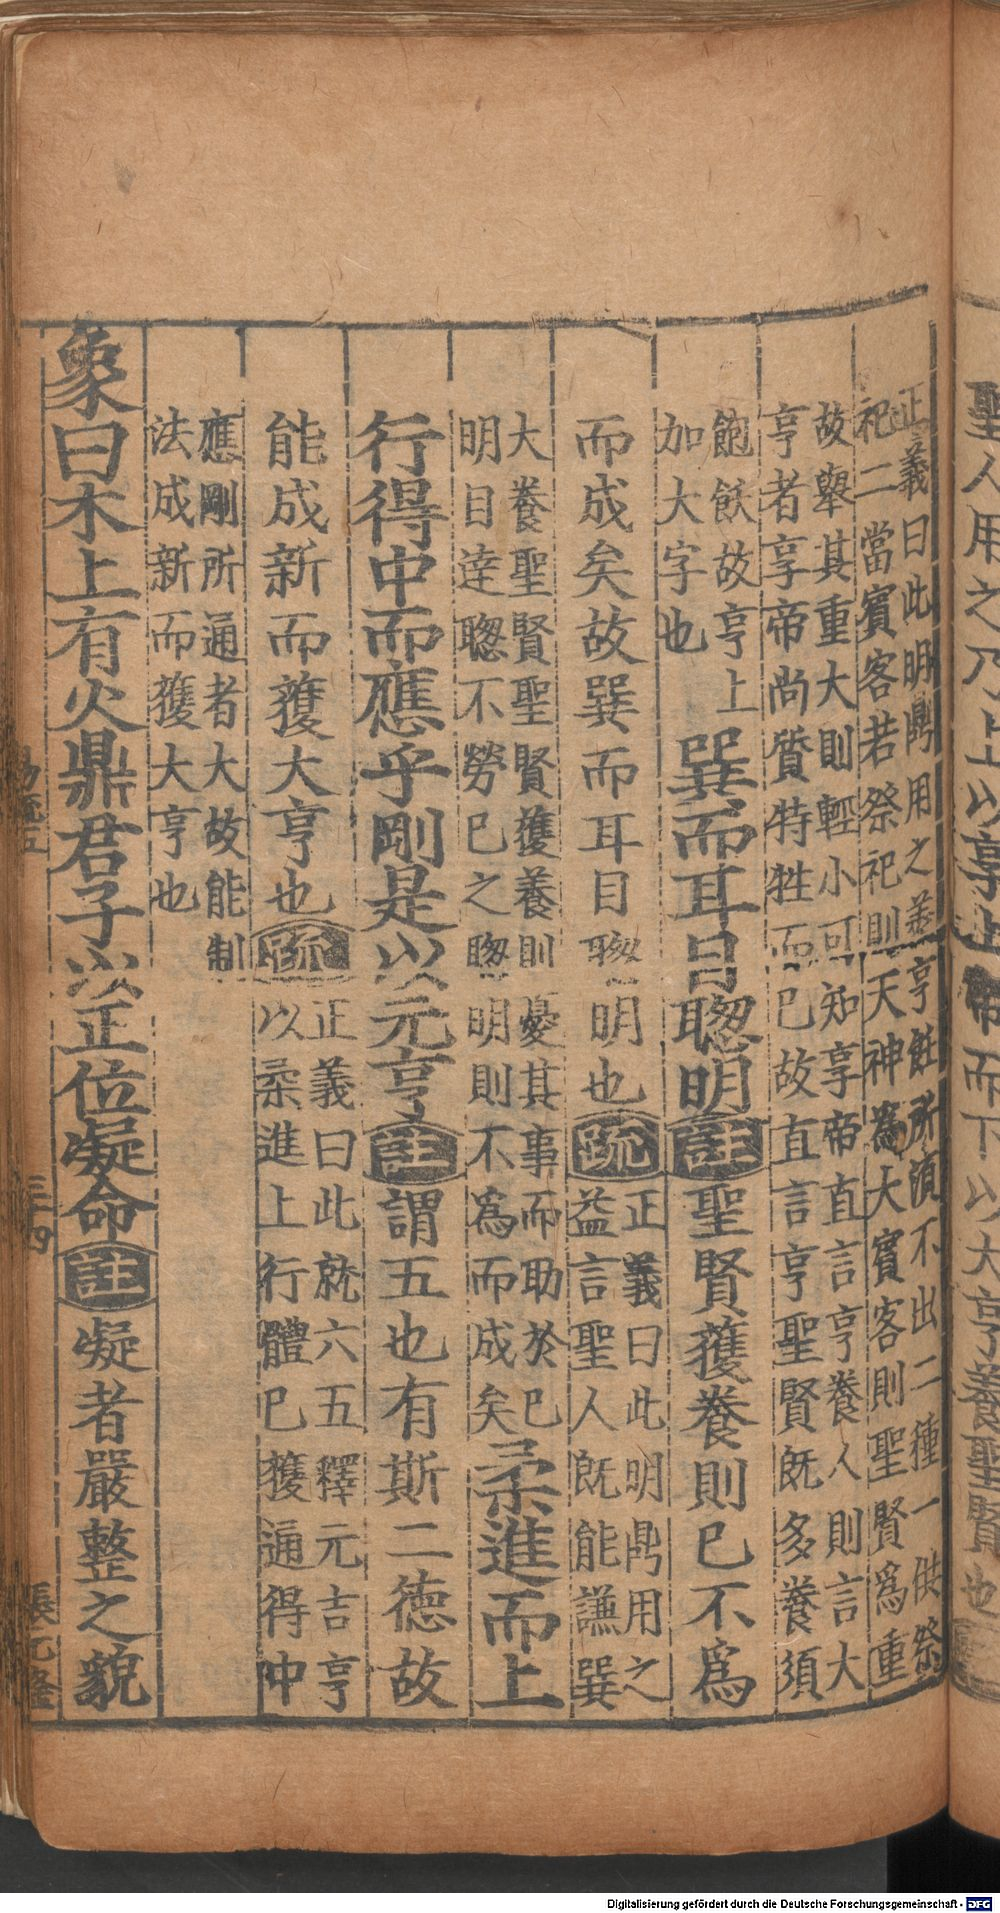 聖人用之乃上以享上帝而下以大亨養聖賢也
正義曰此明鼎用之義亨飪所湏不出二種一供祭
祀二當賔客若祭祀則天神為大賔客則聖賢爲重
故舉其重大則輕小可知享帝直言亨養人則言大
亨者享帝尚質特牲而已故直言亨聖賢旣多養須
飽飫故亨上
加大字也
巽而耳目聦明註聖賢獲養則已不爲
而成矣故巽而耳目聦明也疏
正義曰此明鼎用之
益言聖人旣能謙巽
大養聖賢聖賢獲養則憂其事而助於已
明目達聦不勞已之聦明則不爲而成矣
柔進而上
行得中而應乎剛是以元亨註謂五也有斯二德故
能成新而獲大亨也疏
正義曰此就六五釋元吉亨
以柔進上行體已獲通得中
應剛所通者大故能制
法成新而獲大亨也
象曰木上有火鼎君子以正位凝命註凝者嚴整之貌
易疏五
三十四
張元隆
Digitalisierung gefördert durch die Deutsche Forschungsgemeinschaft - DFG